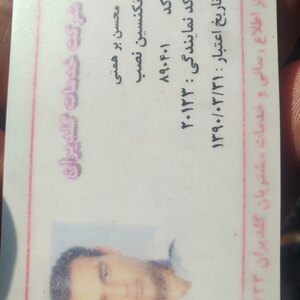 شرکت خدمات گلدیران
محسن برهمتی
تکنسین نصب
کد ۸۹۰۴۰۱
کد نمایندگی : ۲۰۱۲۳
تاریخ اعتبار : ۱۳۹۰/۰۳/۳۱
اطلاع رسانی و خدمات مشتریان گلدیران